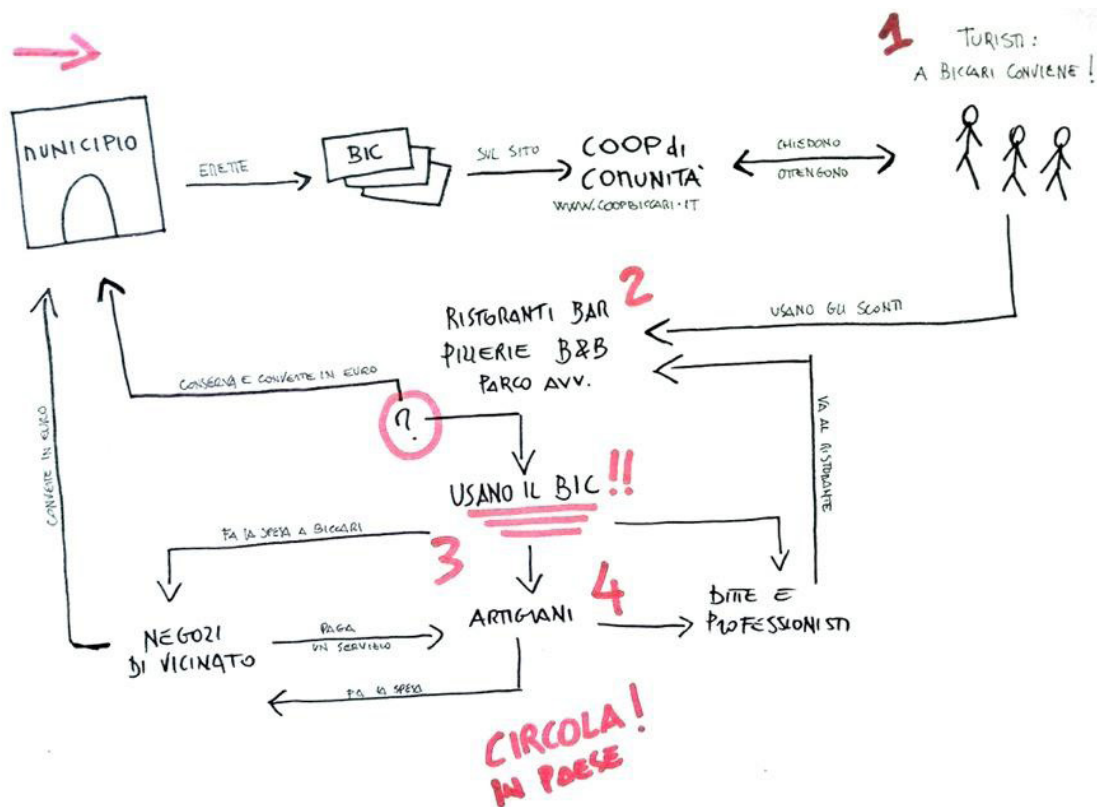 1
TURISTI:
A BICCARI CONVIENE!
MUNICIPIO
EMETTE
BIC
SUL SITO
COOP di
COMUNITÀ
WWW.COOPBICCARI.IT
CHIEDONO
OTTENGONO
2
RISTORANTI BAR
PIZZERIE B&B
PARCO AVV.
USANO GLI SCONTI
CONSERVA E CONVERTE IN EURO
?
CONVERTE IN EURO
VA AL RISTORANTE
USANO IL BIC!!
FA LA SPESA A BICCARI
3
4
ARTIGIANI
DITTE E
PROFESSIONISTI
NEGOZI
DI VICINATO
PAGA
UN SERVIZIO
FA LA SPESA
CIRCOLA!
IN PAESE